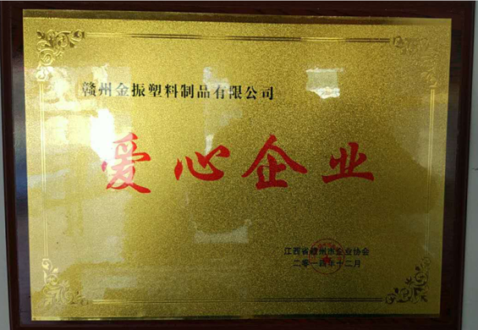 赣州金振塑料制品有限公司
爱心企业
江西省赣州市企业协会
二零一四年十二月